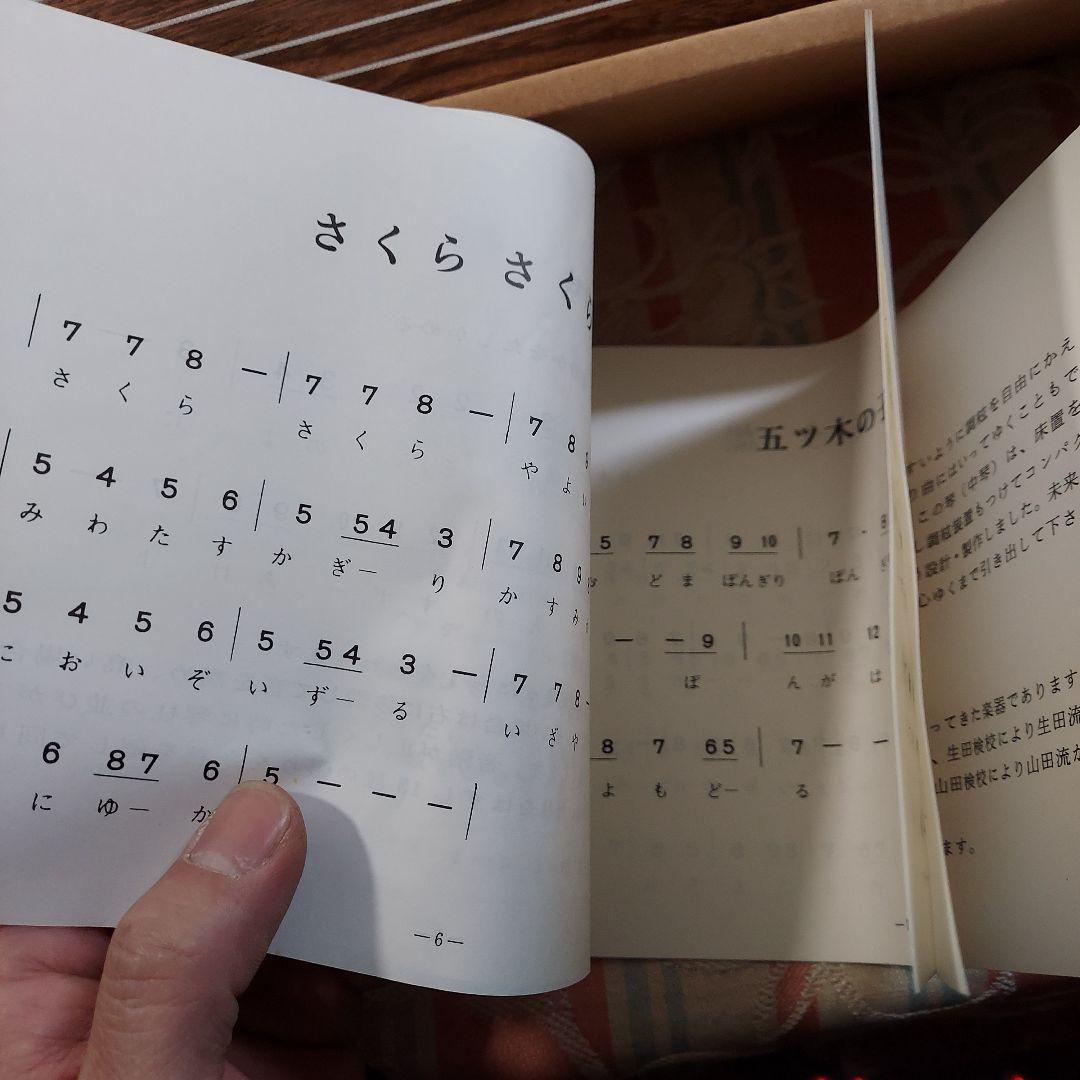 さくら さくら
| 7 7 8 — | 7 7 8 — | 7 8
さ く ら さ く ら や よ い
5 4 5 6 | 5 5 4 3 | 7 8 9
み わ た す か ぎー り か す み
5 4 5 6 | 5 5 4 3 — | 7 7 8 -
こ お い ぞ い ずー る い ざ や
6 8 7 6 | 5 — — — |
に ゆー か
—6—
五ツ木の
5 7 8 9 10 | 7 · 8
ど ま ぼんぎり ぼん
— — 9 | 10 11 12
ぼ ん が は
8 7 6 5 | 7 — —
よ も どー る
すいように調絃を自由にかえ
り曲にはいってゆくこともで
この琴（中琴）は、床置を
し調絃装置もつけてコンパク
設計・製作しました。未来
心ゆくまで引き出して下さ
ってきた楽器であります
、生田検校により生田流
山田検校により山田流か
ます。